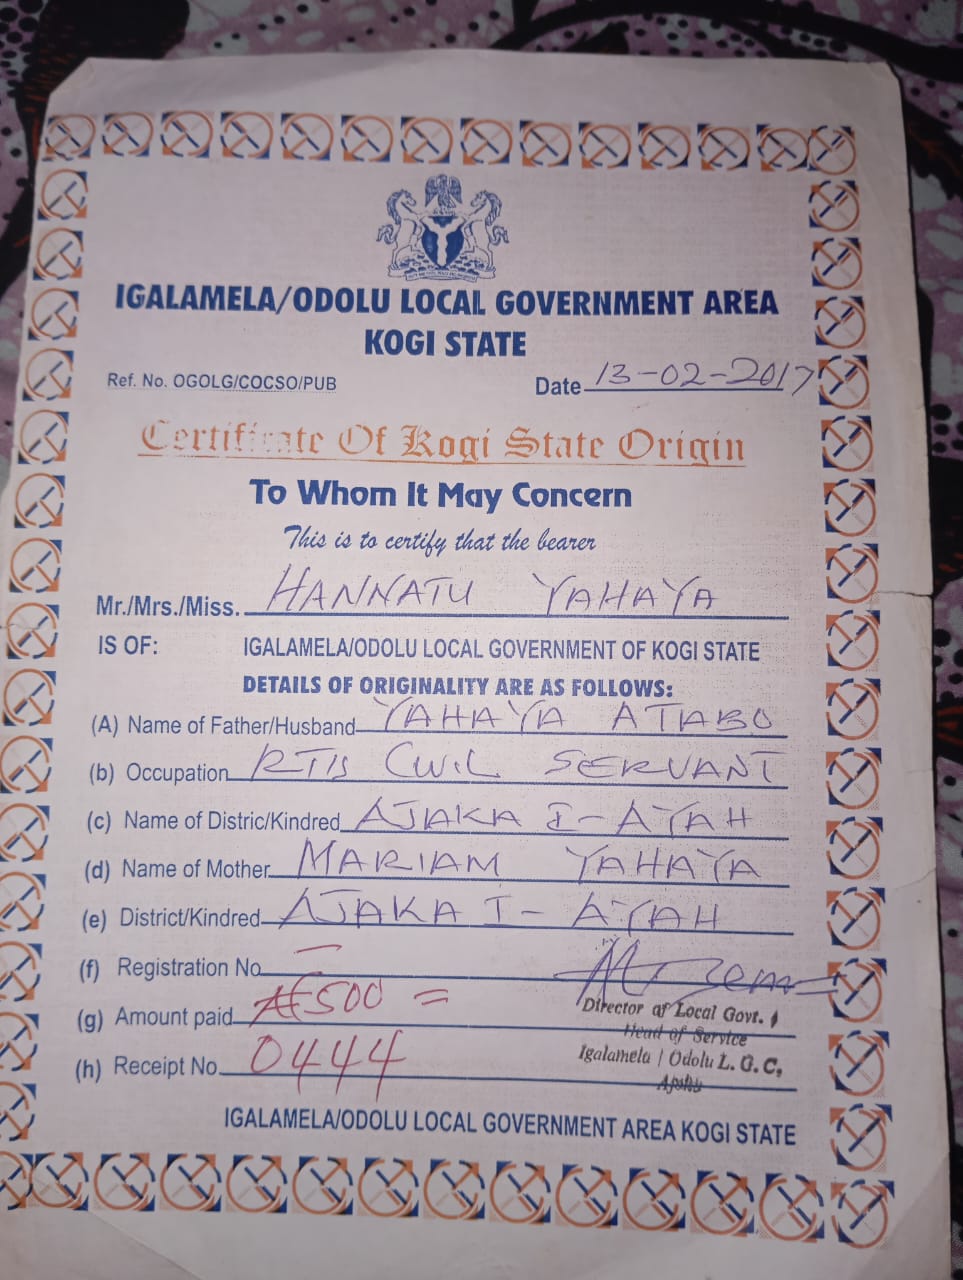 IGALAMELA/ODOLU LOCAL GOVERNMENT AREA
KOGI STATE
Ref. No. OGOLG/COCSO/PUB
Date 13-02-2017
Certificate Of Kogi State Origin
To Whom It May Concern
This is to certify that the bearer
Mr./Mrs./Miss. HANNATU YAHAYA
IS OF: IGALAMELA/ODOLU LOCAL GOVERNMENT OF KOGI STATE
DETAILS OF ORIGINALITY ARE AS FOLLOWS:
(A) Name of Father/Husband YAHAYA ATABO
(b) Occupation CIVIL SERVANT
(c) Name of Distric/Kindred AJAKA I - AYAH
(d) Name of Mother MARIAM YAHAYA
(e) District/Kindred AJAKA I - AYAH
(f) Registration No —
(g) Amount paid ₦500 =
(h) Receipt No. 0444
Director of Local Govt.
Head of Service
Igalamela / Odolu L. G. C,
IGALAMELA/ODOLU LOCAL GOVERNMENT AREA KOGI STATE